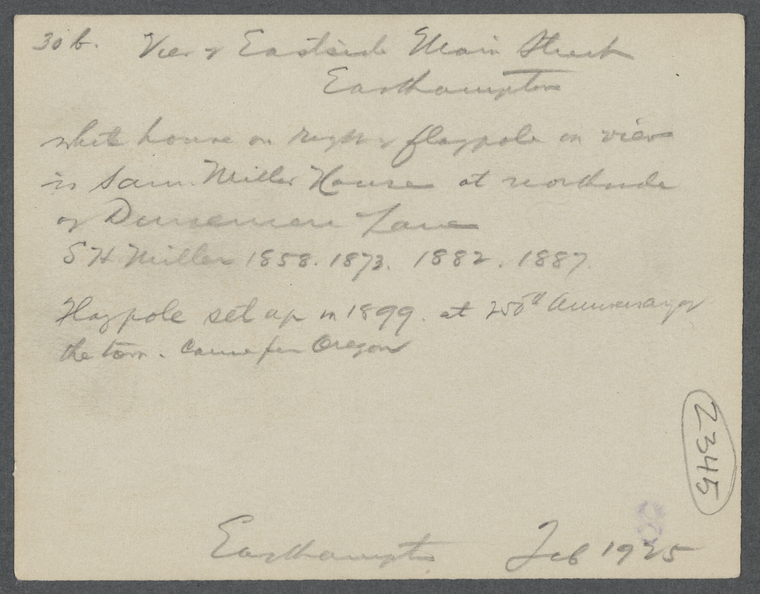 30b. View of Eastside Main Street
Easthampton
white house on right of flagpole in view
is Sam. Miller House at northside
of Dunemere Lane
S H Miller 1858. 1873. 1882. 1887.
Flagpole set up in 1899. at 250th anniversary of
the town. Came from Oregon
Easthampton Feb 1925
2345